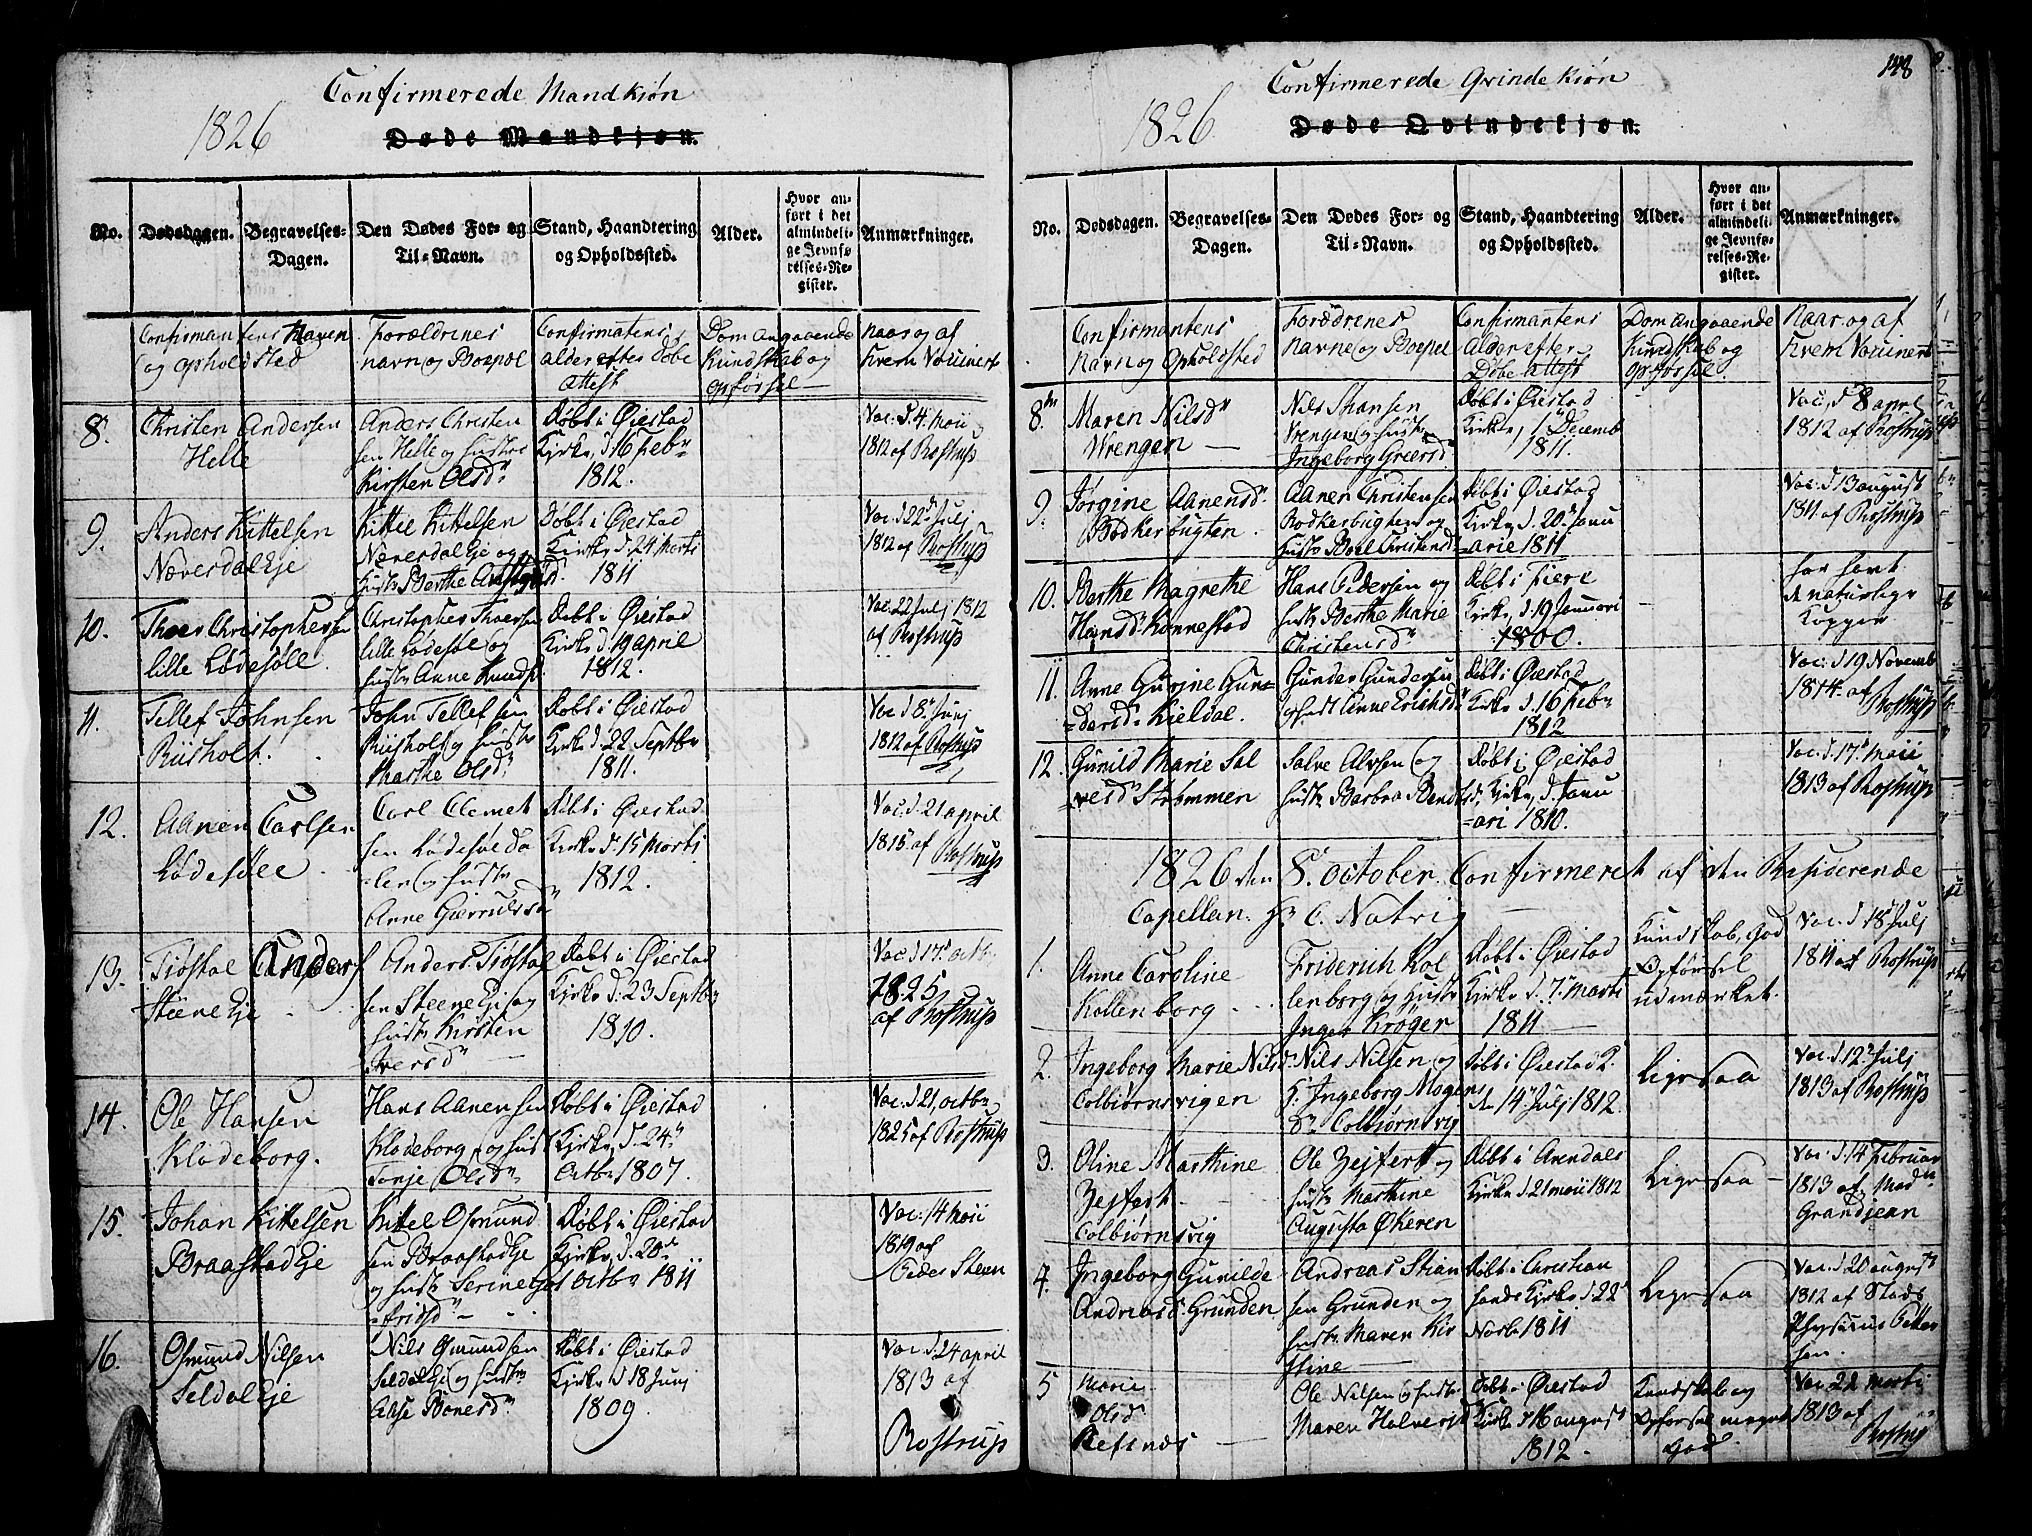 Confirmerede Mandkiøn
1826
Døde Mandkjøn.
No.
Dødsdagen.
Begravelses-
Dagen.
Den Dødes For- og
Til-Navn.
Stand, Haandtering
og Opholdssted.
Alder.
Hvor an-
ført i det
almindeli-
ge Jevnfø-
relses-Re-
gister.
Anmærkninger.
Confirmantens Navn
og opholdsted
Forældrenes
navn og Boepæl
Confirmatens
alder efter Døbe
Attest
Dom angaaende
Kundskab og
opførsel
Naar og af
hvem Vaccineret
8.
Christen Andersen
Helle
Anders Christen
sen Helle og hustru
Kirsten Olsd
Døbt i Øiestad
Kirke, d. 16 Febr
1812.
Vac. d. 4 Maii
1812 af Rostrup
9.
Anders Kittelsen
Næverdal Eje
Kittel Kittelsen
Næverdal Eje og
hustr Berthe
Døbt i Øiestad
Kirke d. 24 Marti
1811
Vac. d. 22 Julj
1812 af Rostrup
10.
Thoer Christophersen
lille Lødesøll.
Christopher Thoersen
lille Lødesøl og
hustr Anne Knudsd.
Døbt i Øiestad
Kirke d. 19 april
1812.
Vac. 22 Julj 1812
af Rostrup
11.
Tellef Johnsen
Riisholt.
John Tellefsen
Riisholt og hustr
Marthe Olsd
Døbt i Øiestad
Kirke d. 22 Septbr
1811.
Vac d 8 Junj
1812 af Rostrup
12.
Aanen Carlsen
Lødesølle
Carl Clemet
sen Lødesøl Da
len og hustr
Anne
Døbt i Øiestad
Kirke d. 15 Marti
1812.
Vac d. 21 april
1815 af Rostrup
13.
Tiøstøl Anders
Steene Eje
Anders Tiøstøl
sen Steene Eje og
hustr Kirsten
Iversd
Døbt i Øiestad
Kirke d. 23 Septbr
1810.
Vac d. 17 octb.
1825
af Rostrup
14.
Ole Hansen
Klødeborg.
Hans Aanensen
Klødeborg og hust
Tonje Olsd
Døbt i Øiestad
Kirke, d. 24
Octbr 1807.
Vac. d. 21, octbr
1825 af Rostrup
15.
Johan Kittelsen
Braastad Eje
Kittel Osmund
sen Braastad Eje
og hustr Serine
Døbt i Øiestad
Kirke, d. 20
octbr 1811
Vac: 14 Maii
1819 af
Peder Steen
16.
Osmund Nilsen
Seldal Eje
Nils Osmundsen
Seldal Eje og hustr
Aase Bonesd
Døbt i Øiestad
Kirke d 18 Junj
1809.
Vac d 24 april
1813 af
Rostrup
148
Confirmerede Qvinde Kiøn
1826
Døde Qvindekjøn.
No.
Dødsdagen.
Begravelses-
Dagen.
Den Dødes For- og
Til-Navn.
Stand, Haandtering
og Opholdssted.
Alder.
Hvor an-
ført i det
almindeli-
ge Jevnfø-
relses-Re-
gister.
Anmærkninger.
Confirmantens
Navn og Opholdsted
Forædrenes
Navne og Boepæl
Confirmantens
Alder efter
Døbe Attest
Dom Angaaende
Kundskab og
opførsel.
Naar og af
hvem Vaccineret
8
Maren Nilsd
Wrengen
Nils Hansen
Vrengen og hustr
Ingeborg Greersd
Døbt i Øiestad
Kirke, 1 Decemb
1811.
Vac, d. 8 april
1812 af Rostrup
9.
Jørgine Aanensd.
Bødkerbugten
Aanen Christensen
Bødkerbugten og
hustr Boel Christensd
Døbt i Øiestad
Kirke d. 20 Janu
arie 1811
Vac: d. 13 august
1811 af Rostrup
10.
Berthe Magrethe
Hansd. Rønnestad
Hans Pedersen og
hustr Berthe Marie
Christensd
Døbt i Fiere
Kirke, d. 19 Januari
1800.
har havt
de naturlige
Kopper
11.
Anne Gurine Gun=
=dersd. Kieldal.
Gunder Gundersen
og hust Anne Erichsd
Døbt i Øiestad
Kirke d. 16 Febr
1812
Vac: d 19 Novemb
1814. af Rostrup
12.
Gunild Marie Sal
vesd Strømmen
Salve Alvsen og
hustr Barbra Bendtsd
Døbt i Øiestad
Kirke, d. Janu
=ari 1810.
Vac: d. 17. Maii
1813 af Rostrup
1826 den 8. october Confirmeret af den Residerende
Capellan. Hr C. Natvig
1.
Anne Caroline
Kollenborg
Friderich Kol
lenborg og hustr
Inger Krøger
Døbt i Øiestad
Kirke d. 7. Marti
1811
Kundskab, god
Opførsel
udmærket.
Vac. d. 18 Julj
1811 af Rostrup
2.
Ingeborg Marie Nilsd
Colbiørnsvigen
Nils Nilsen og
h. Ingeborg Mogens
dr Colbiørnsvig
Døbt i Øiestad K.
den 14 Julj 1812.
Ligesaa
Vac. d. 12 Julj
1813 af Rostrup
3.
Oline Marthine
Zejfert
Colbiørnsvig
Ole Zejfert og
hustr Marthine
Augusta Økeren
Døbt i Arendals
Kirke d 21 Maii 1812
Ligesaa
Vac. d. 14 Februar
1813 af Mad
Grandjean
4.
Ingeborg Gunilde
Andreasd. Grunden
Andreas Stian
sen Grunden og
hustr Maren Kir
stine
Døbt i Christian
sands Kirke d 22
Novbr 1811
Ligesaa
Vac. d 20 august
1812 af Stads
Physicus Peter
sen.
5
Marie
Olsd
Refsnæs
Ole Nilsen og hustr
Maren Halversd
Døbt i Øiestad
Kirke d 16 august
1812.
Kundskab og
opførsel meget
god.
Vac. 22 Martij
1813 af
Rostrup